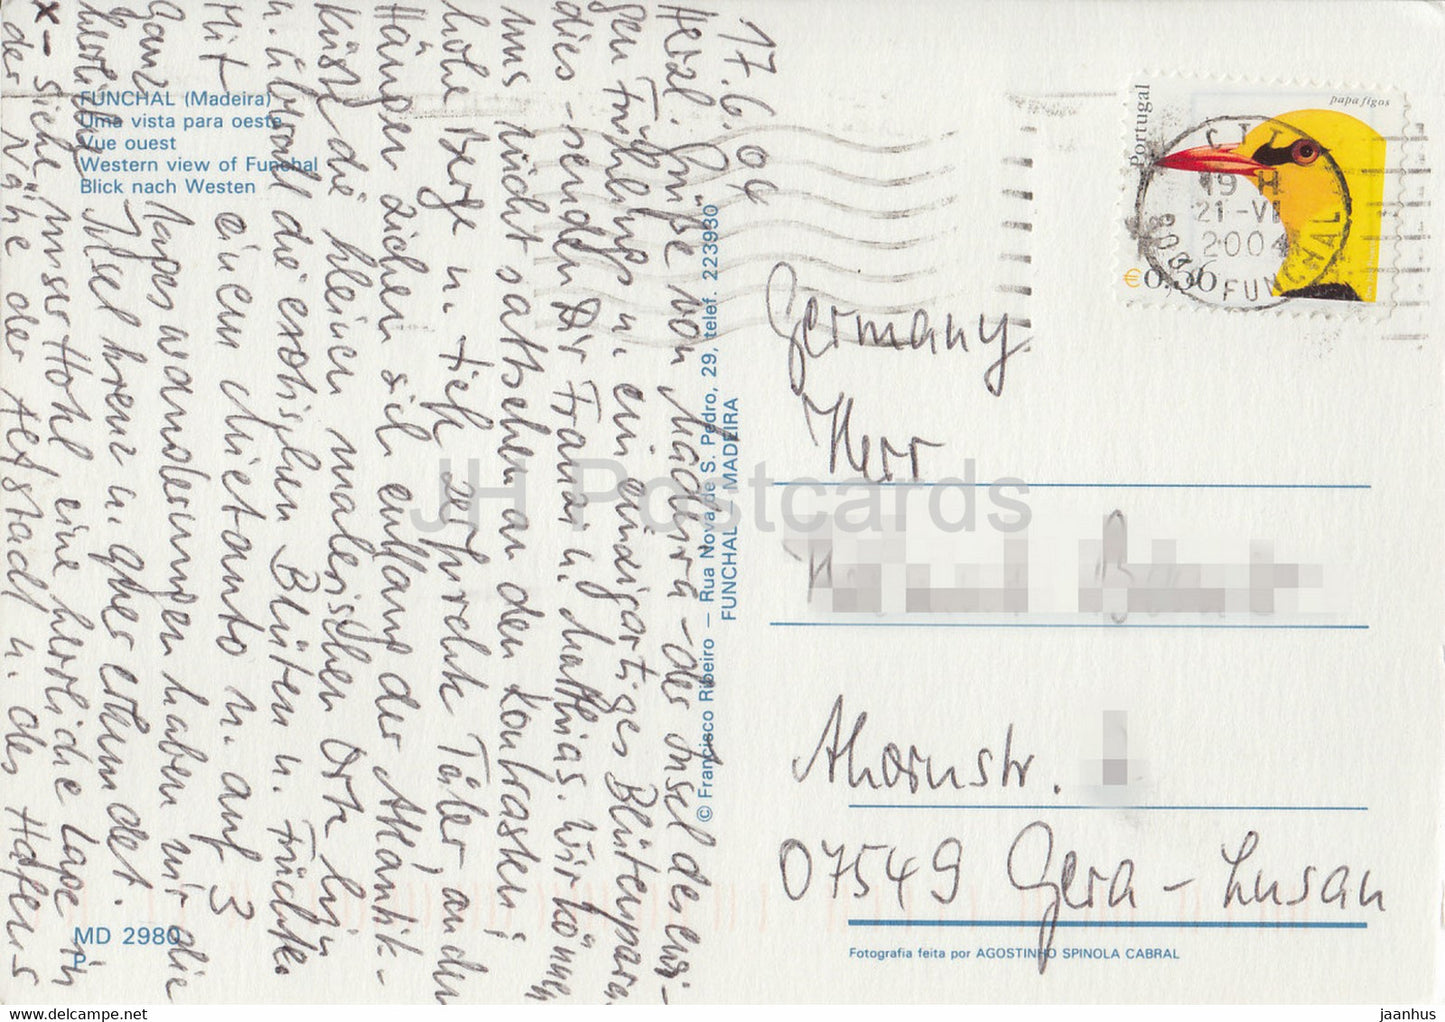 17.6.04
Herzl. Grüße von Madeira - der Insel des ewi-
gen Frühlings u. ein einzigartiges Blütenpara-
dies - senden Dir Franzi u. Matthias. Wir können
uns nicht sattsehen an den Kontrasten,
hohe Berge u. tief zerfurchte Täler, an den
Hängen ziehen sich entlang der Atlantik-
küste die kleinen malerischen Orte hin
u. überall die exotischen Blüten u. Früchte.
Mit einem Mietauto u. auf 3
Ganztageswanderungen haben wir die
herrliche Insel kreuz u. quer erkundet.
x- siehe unser Hotel, eine herrliche Lage in
der Nähe der Altstadt u. des Hafens
FUNCHAL (Madeira)
Uma vista para oeste
Vue ouest
Western view of Funchal
Blick nach Westen
MD 2980
P
© Francisco Ribeiro — Rua Nova de S. Pedro, 29, telef. 223930
FUNCHAL — MADEIRA
Portugal
papa figos
0,56
19 H
21-VI
2004
FUNCHAL
Germany
Herr
Ahornstr.
07549 Gera - Lusan
Fotografia feita por AGOSTINHO SPINOLA CABRAL
JH Postcards
www.hippostcard.com
jaanhus